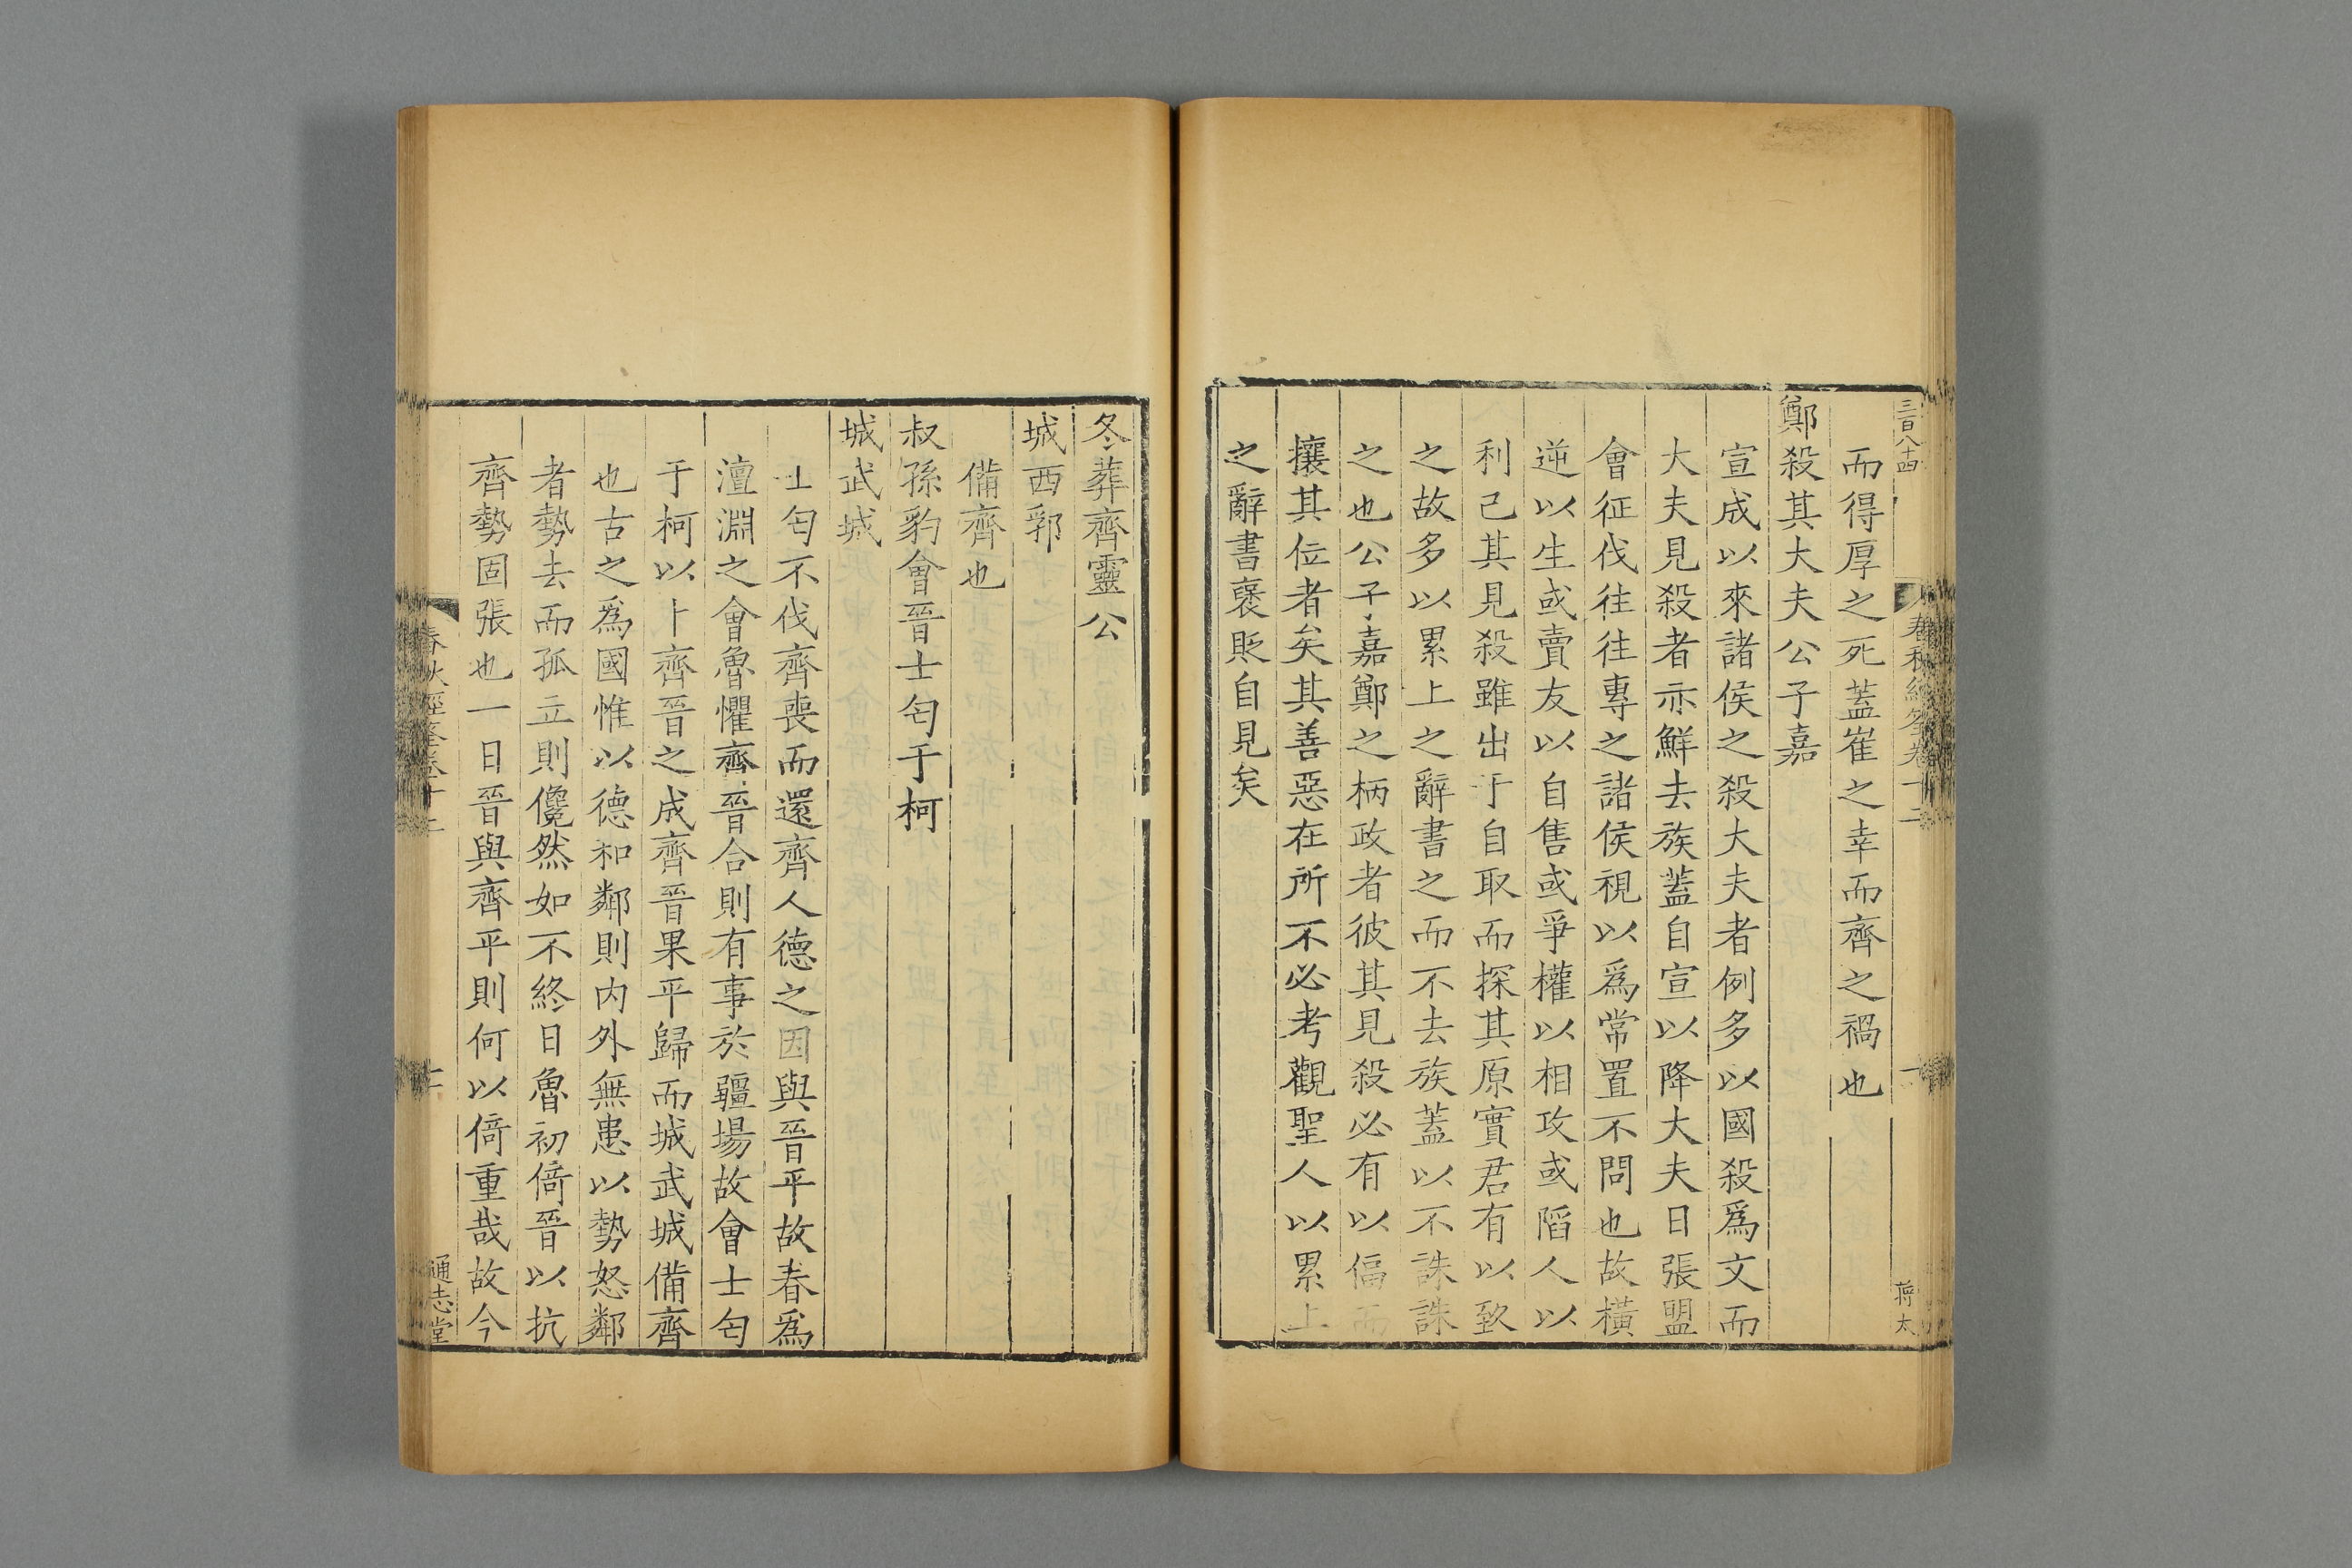 三百八十四
春秋經筌卷十二
蔣太
而得厚之死蓋崔之幸而齊之禍也
鄭殺其大夫公子嘉
宣成以來諸侯之殺大夫者例多以國殺爲文而
大夫見殺者亦鮮去族蓋自宣以降大夫日張盟
會征伐往往專之諸侯視以爲常置不問也故橫
逆以生或賣友以自售或爭權以相攻或陷人以
利己其見殺雖出于自取而探其原實君有以致
之故多以累上之辭書之而不去族蓋以不誅誅
之也公子嘉鄭之柄政者彼其見殺必有以偪而
攘其位者矣其善惡在所不必考觀聖人以累上
之辭書褒貶自見矣
冬葬齊靈公
城西郛
備齊也
叔孫豹會晉士匄于柯
城武城
士匄不伐齊喪而還齊人德之因與晉平故春爲
澶淵之會魯懼齊晉合則有事於疆場故會士匄
于柯以卜齊晉之成齊晉果平歸而城武城備齊
也古之爲國惟以德和鄰則内外無患以勢怒鄰
者勢去而孤立則儳然如不終日魯初倚晉以抗
齊勢固張也一日晉與齊平則何以倚重哉故今
春秋經筌卷十二
通志堂